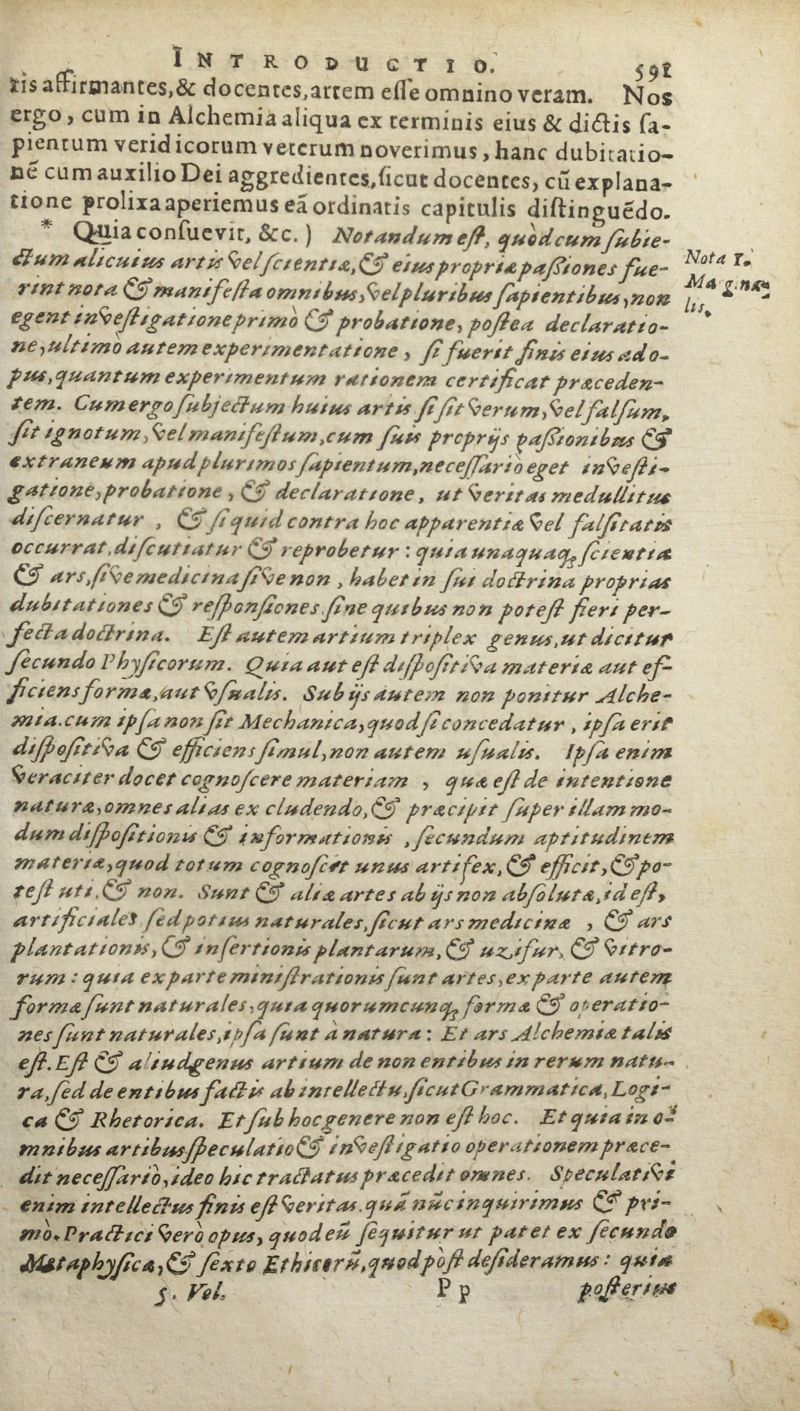 INTRODUCTIO. 591
tis affirmantes,& docentes,artem eſſe omnino veram. Nos
ergo, cum in Alchemia aliqua ex terminis eius & dictis ſa-
pientum veridicorum veterum noverimus, hanc dubitatio-
nē cum auxilio Dei aggredientes,ſicut docentes, cū explana-
tione prolixa aperiemus eā ordinatis capitulis diſtinguēdo.
* Quia conſuevit, &c. ) Notandum eſt, quòd cum ſubie-
ctum alicuius artis vel ſcientiæ,& eius propriæ paſsiones fue-
rint nota & manifeſta omnibus, vel pluribus ſapientibus, non
egent inveſtigatione primò & probatione, poſtea declaratio-
ne, ultimò autem experimentatione, ſi fuerit finis eius ad o-
pus, quantum experimentum rationem certificat præceden-
tem. Cum ergo ſubjectum huius artis ſi ſit verum, vel falſum,
ſit ignotum, vel manifeſtum, cum ſuis proprijs paſsionibus &
extraneum apud plurimos ſapientum, neceſſariò eget inveſti-
gatione, probatione, & declaratione, ut veritas medullitus
diſcernatur, & ſi quid contra hoc apparentiæ vel falſitatis
occurrat, diſcutiatur & reprobetur : quia unaquaq; ſcientia
& ars, ſive medicina ſive non, habet in ſui doctrina proprias
dubitationes & reſponſiones ſine quibus non poteſt fieri per-
fecta doctrina. Eſt autem artium triplex genus, ut dicitur
ſecundo Phyſicorum. Quia aut eſt diſpoſitiva materiæ aut ef-
ficiens formæ, aut uſualis. Sub ijs autem non ponitur Alche-
mia. cum ipſa non ſit Mechanica, quod ſi concedatur, ipſa erit
diſpoſitiva & efficiens ſimul, non autem uſualis. Ipſa enim
veraciter docet cognoſcere materiam, quæ eſt de intentione
naturæ, omnes alias excludendo, & præcipit ſuper illam mo-
dum diſpoſitionis & informationis, ſecundum aptitudinem
materiæ, quod totum cognoſcit unus artifex, & efficit, & po-
teſt uti, & non. Sunt & aliæ artes ab ijs non abſolutæ, id eſt,
artificiales ſed potius naturales, ſicut ars medicinæ, & ars
plantationis, & inſertionis plantarum, & uzifur, & vitro-
rum : quia ex parte miniſtrationis ſunt artes, ex parte autem
formæ ſunt naturales, quia quorumcunq; formæ & operatio-
nes ſunt naturales, ipſa ſunt à natura : Et ars Alchemiæ talis
eſt. Eſt & aliud genus artium de non entibus in rerum natu-
ra, ſed de entibus factis ab intellectu, ſicut Grammatica, Logi-
ca & Rhetorica. Et ſub hoc genere non eſt hoc. Et quia in o-
mnibus artibus ſpeculatio & inveſtigatio operationem præce-
dit neceſſariò, ideo hic tractatus præcedit omnes. Speculativi
enim intellectus finis eſt veritas. quā nūc inquirimus & pri-
mò. Practici verò opus, quod eū ſequitur ut patet ex ſecundo
Metaphyſica, & ſexto Ethicorū, quod pòſt deſideramus : quia
5. Vol. Pp poſterius
Nota 1.
Magina-
lis.